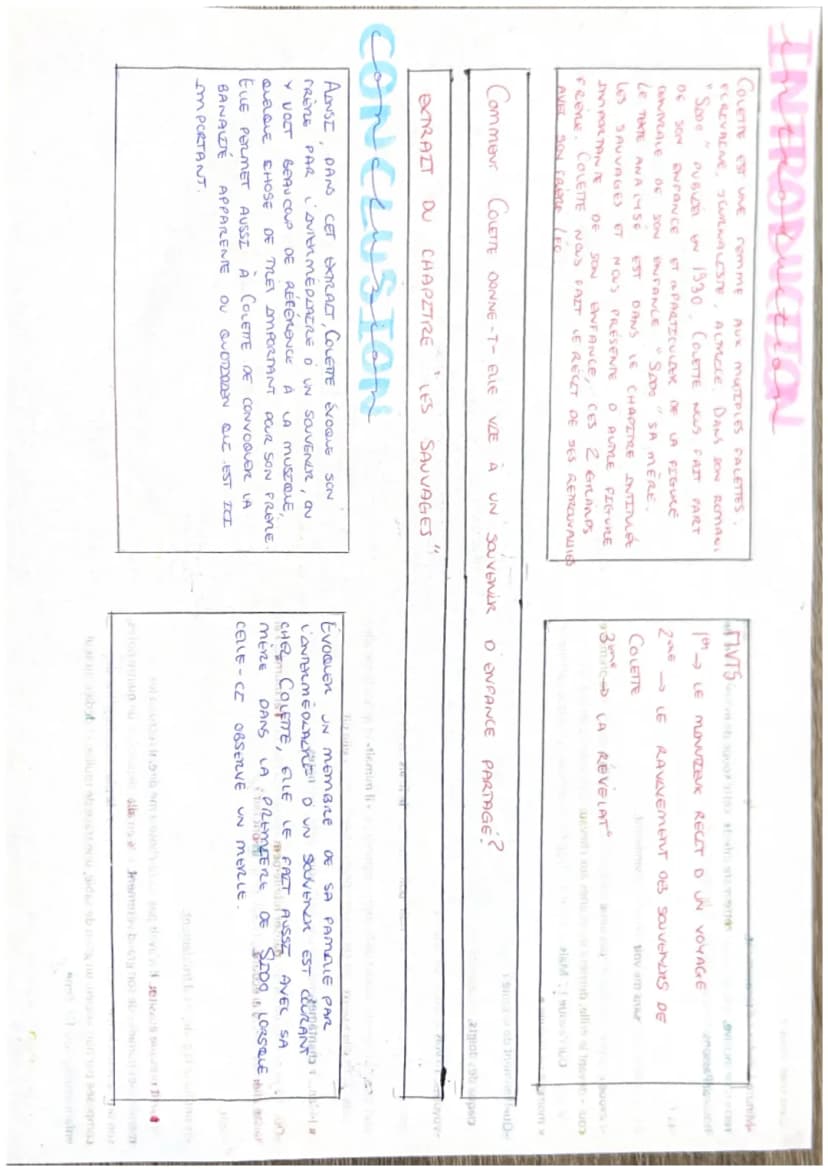 INTRODUCTION
Introduction
COLETTE EST UNE FEMME AUX MULTIPLES FACETTES.
ECREVAINE, JOURNALISTE, ACTRICE. DANS SON ROMAN
"SIDO" PUBLIÉ EN 1930, COLETTE NOUS FAIT PART
DE SON ENFANCE ET EN PARTICULIER DE LA FIGURE
CENTRALE DE SON ENFANCE "SIDO" SA MÈRE.
LE TEXTE ANALYSÉ EST DANS LE CHAPITRE INTITULÉ
LES SAUVAGES ET NOUS PRÉSENTE D AUTRE FIGURE
IMPORTANTE DE SON ENFANCE, CES 2 GRANDS
FRÈRE. COLETTE NOUS FAIT LE RÉCIT DE SES RETROUVAILLES
AVEC SON FRÈRE LÉO
MVTS
1er → LE MINUTIEUX RECIT D UN VOYAGE
2eme → LE RAVIVEMENT DES SOUVENIRS DE
COLETTE
3eme → LA RÉVÉLAT°
COMMENT COLETTE DONNE-T-ELLE VIE À UN SOUVENIR D ENFANCE PARTAGÉ?
EXTRAIT DU CHAPITRE "LES SAUVAGES"
CONCLUSION
Conclusion
AINSI, DANS CET EXTRAIT, COLETTE ÉVOQUE SON
FRÈRE PAR L'INTERMÉDIAIRE D UN SOUVENIR, ON
Y VOIT BEAUCOUP DE RÉFÉRENCE À LA MUSIQUE,
QUELQUE CHOSE DE TRÈS IMPORTANT POUR SON FRÈRE.
ELLE PERMET AUSSI À COLETTE DE CONVOQUER LA
BANALITÉ APPARENTE DU QUOTIDIEN QUI EST ICI
IMPORTANT.
ÉVOQUER UN MEMBRE DE SA FAMILLE PAR
L'INTERMÉDIAIRE D UN SOUVENIR EST COURANT
CHEZ COLETTE, ELLE LE FAIT AUSSI AVEC SA
MÈRE DANS LA PREMIÈRE DE SIDO LORSQUE
CELLE-CI OBSERVE UN MERLE.